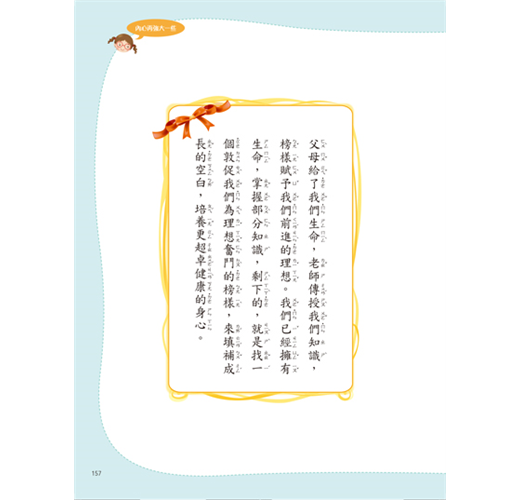 內心再強大一些
父母給了我們生命，老師傳授我們知識，
榜樣賦予我們前進的理想。我們已經擁有
生命，掌握部分知識，剩下的，就是找一
個敦促我們為理想奮鬥的榜樣，來填補成
長的空白，培養更超卓健康的身心。
157